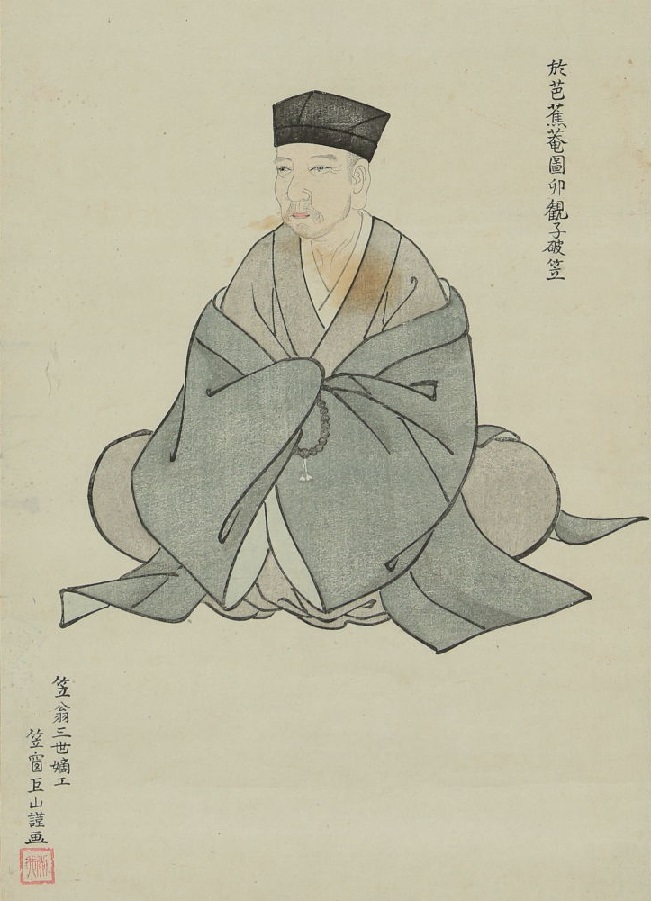 於芭蕉菴圖卯観子破笠
笠翁三世嫡工
笠窗巨山謹画